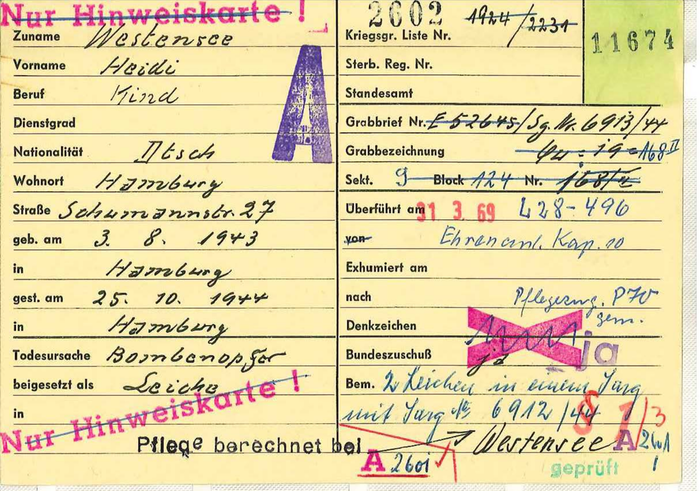 Nur Hinweiskarte !
Zuname Westensee
Vorname Heidi
Beruf Kind
Dienstgrad
Nationalität Dtsch
Wohnort Hamburg
Straße Schumannstr. 27
geb. am 3. 8. 1943
in Hamburg
gest. am 25. 10. 1944
in Hamburg
Todesursache Bombenopfer
beigesetzt als Leiche
in
Nur Hinweiskarte !
A
2602 1924/2231
Kriegsgr. Liste Nr.
11674
Sterb. Reg. Nr.
Standesamt
Grabbrief Nr. E 52645/Sg. Nr. 6913/44
Grabbezeichnung 168 II
Sekt. 9 Block 124 Nr. 168/2
Überführt am 31. 3. 69 L 28-496
von Ehrenanl. Kap. 10
Exhumiert am
nach Pflegezug. P70
gem.
Denkzeichen
Bundeszuschuß ja ja
Bem. 2 Leichen in einem Sarg
mit Sarg No 6912/44 § 1/3
Pflege berechnet bei Westensee A 2601
A 2601
geprüft